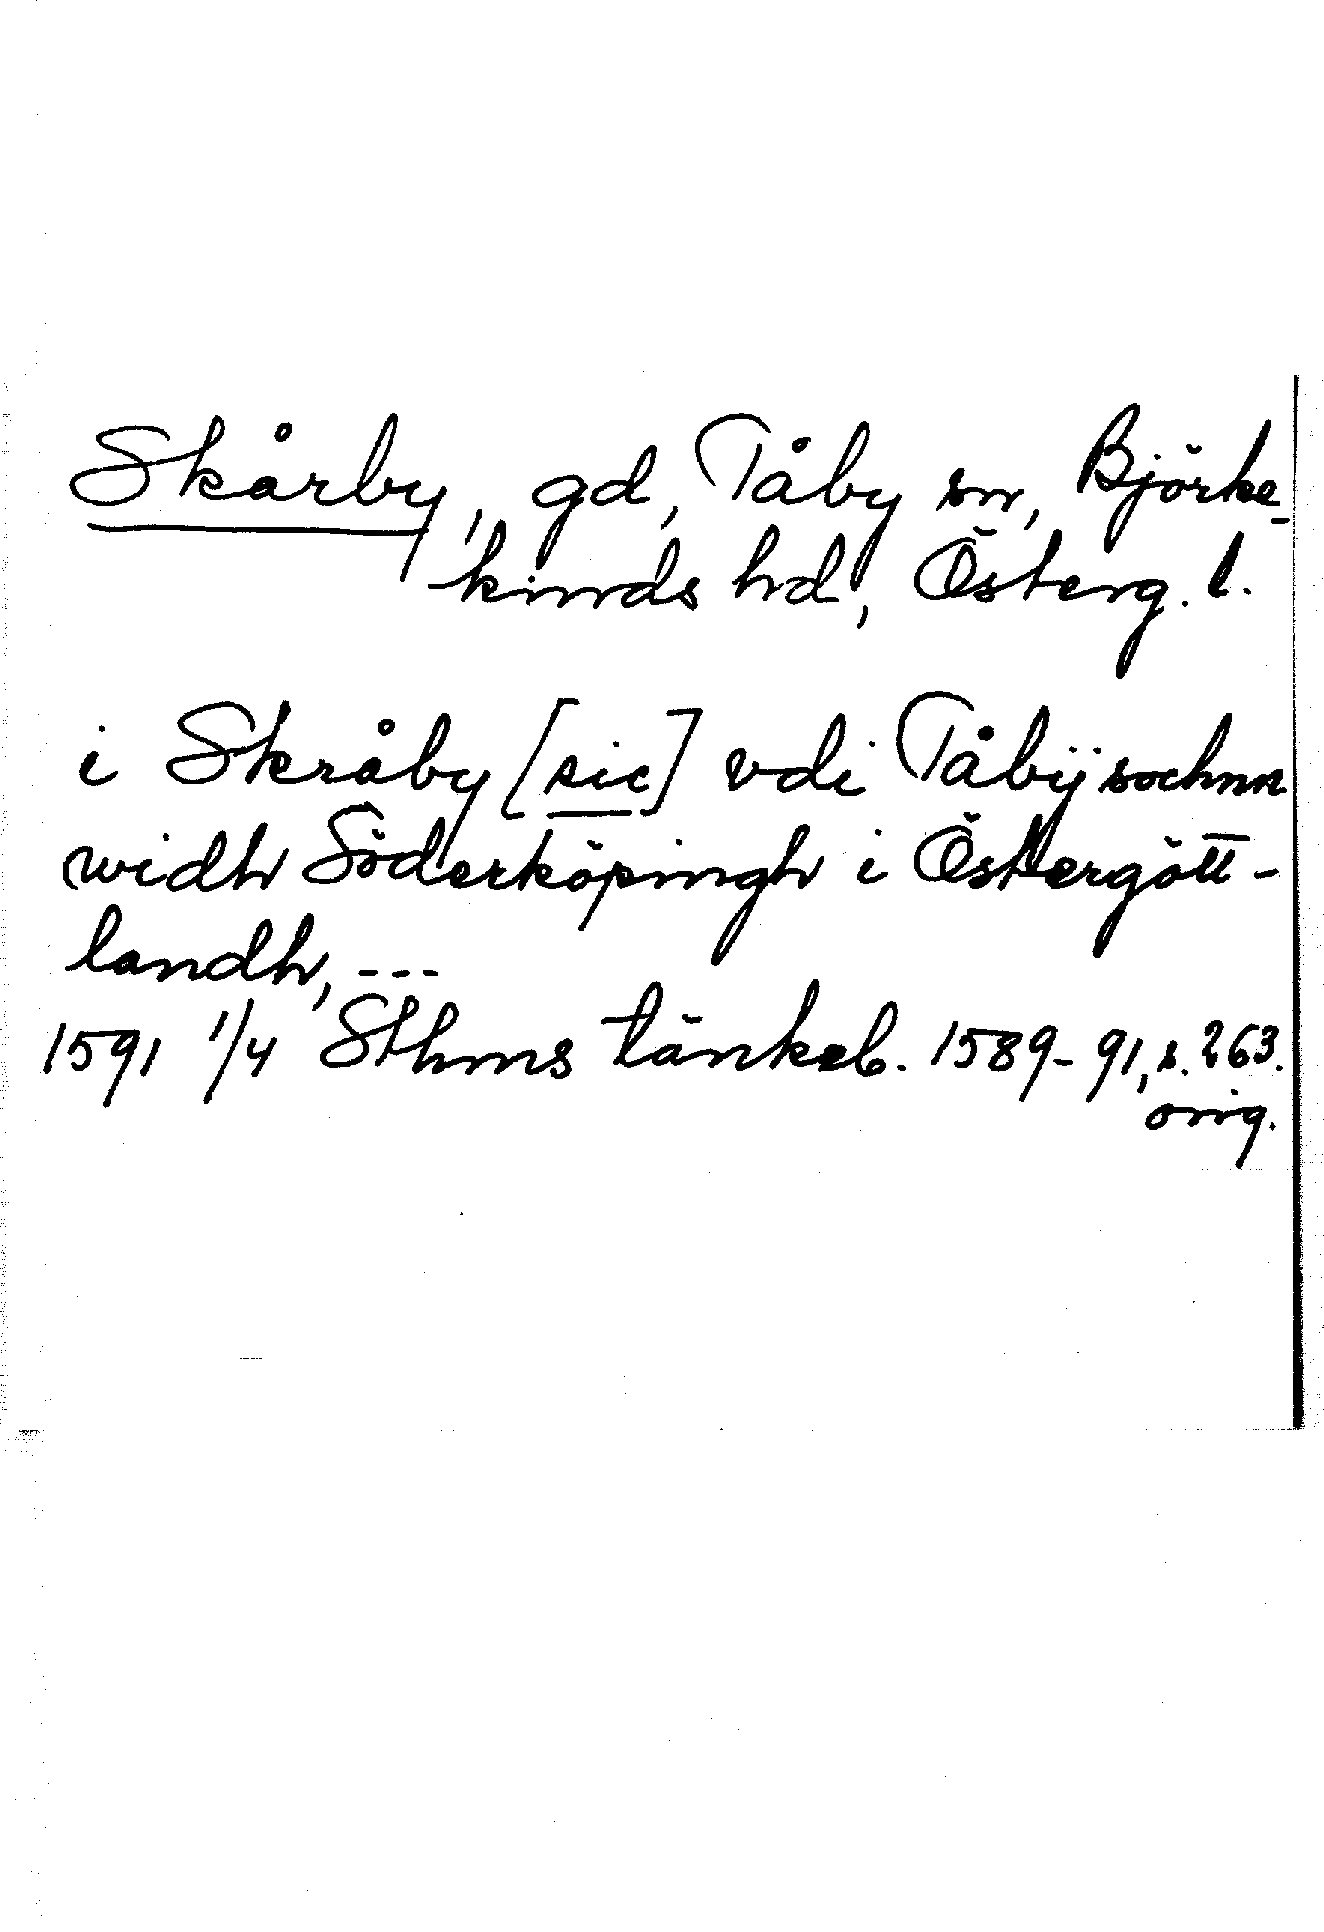 Skårby, gd, Tåby sn, Björke-
kinds hd, Österg. l.
i Skråby [sic] vdi Tåbÿ sochnn
widh Söderköpingh i Östergött-
landh, ---
1591 1/4 Sthms tänkeb. 1589-91, s. 263.
orig.